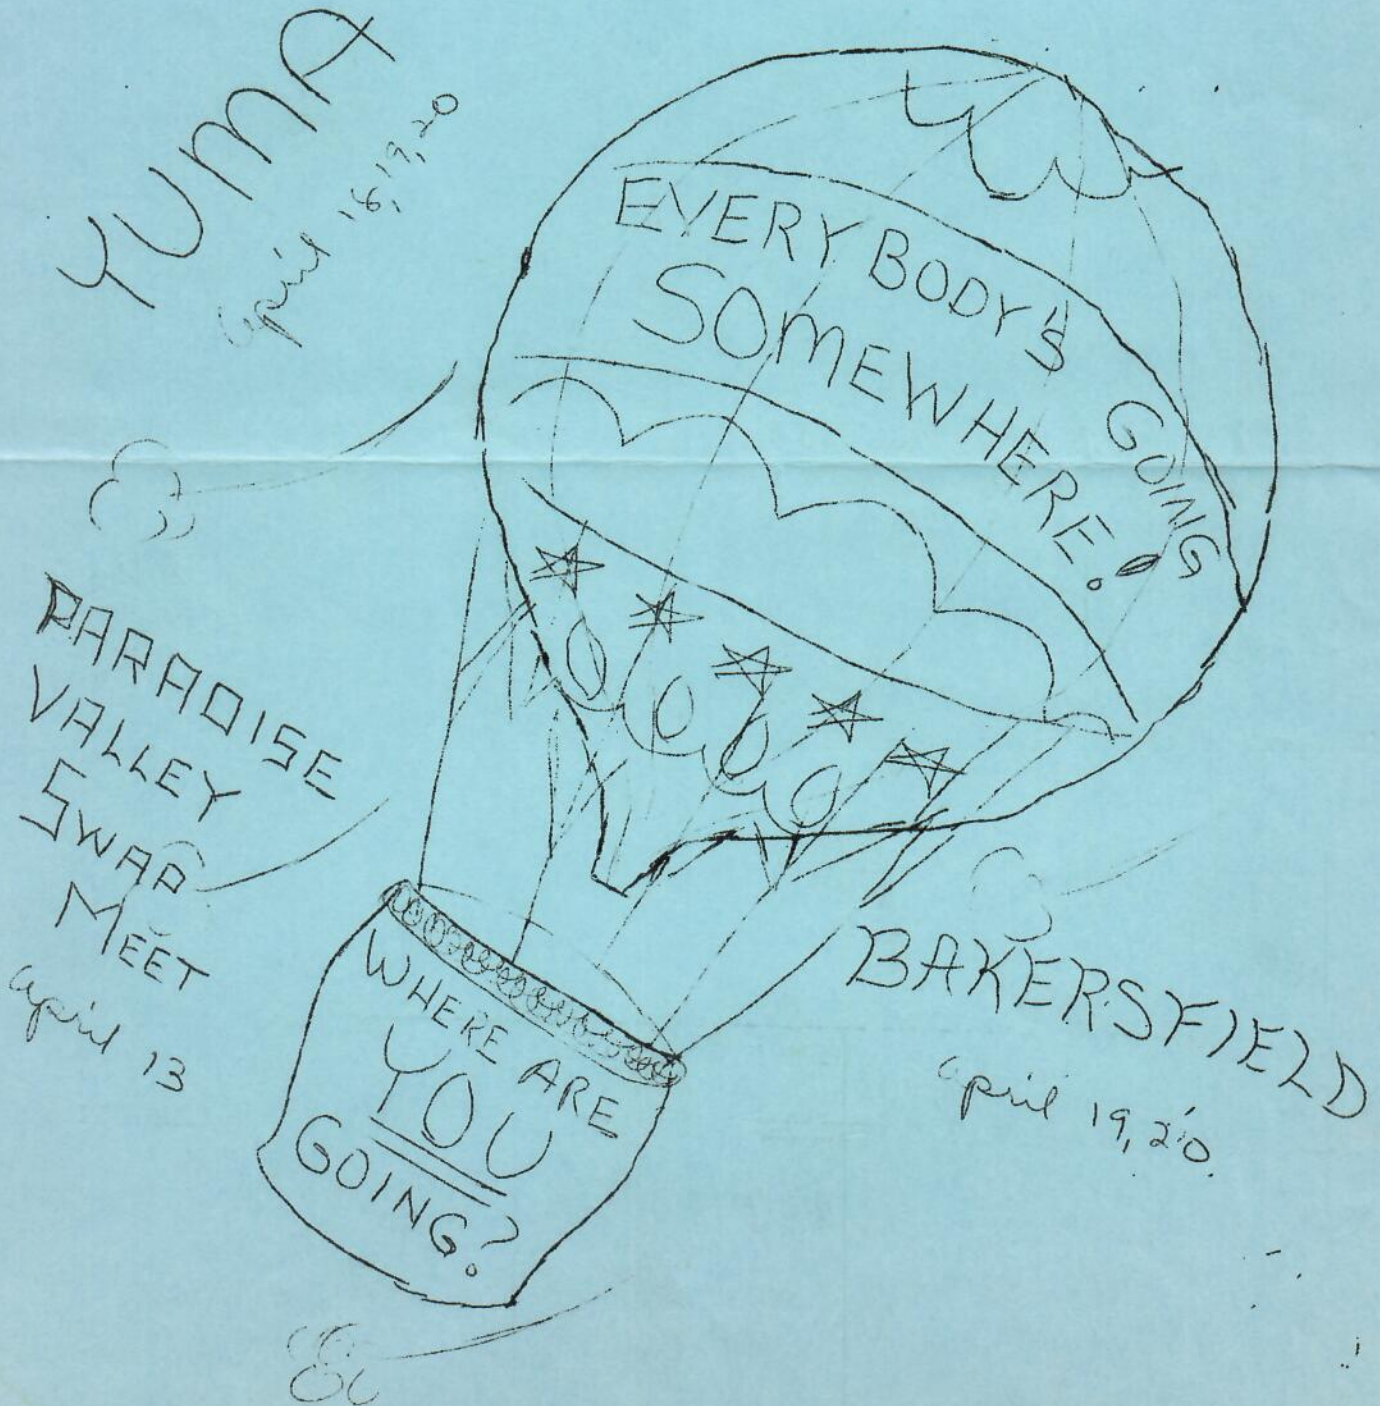 YUMA
april 18, 19, 20
EVERYBODY'S GOING
SOMEWHERE!
PARADISE
VALLEY
SWAP
MEET
april 13
WHERE ARE
YOU
GOING?
BAKERSFIELD
april 19, 20.